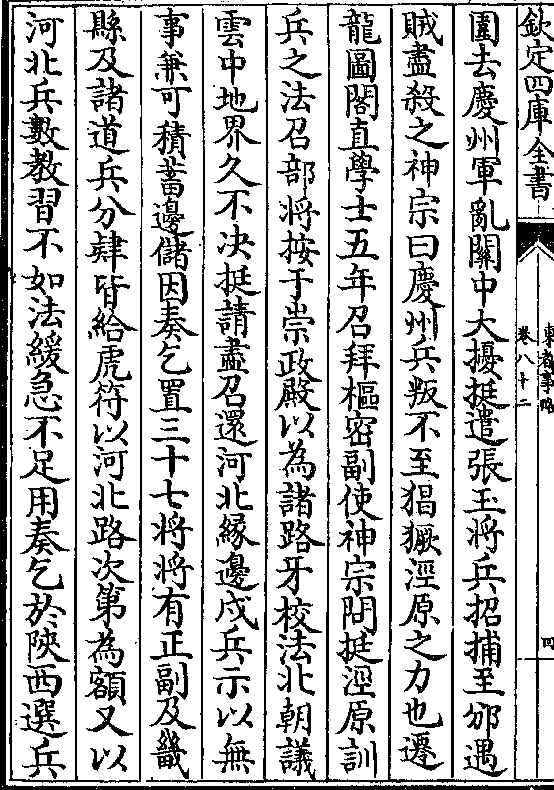 欽定四庫全書
東都事略
卷八十二
四
圍去慶州軍亂關中大擾挺遣張玉將兵招捕至邠遇
賊盡殺之神宗曰慶州兵叛不至猖獗涇原之力也遷
龍圖閣直學士五年召拜樞密副使神宗問挺涇原訓
兵之法召部將按于崇政殿以為諸路牙校法北朝議
雲中地界久不決挺請盡召還河北緣邊戍兵示以無
事兼可積蓄邊儲因奏乞置三十七將將有正副及畿
縣及諸道兵分肄皆給虎符以河北路次第為額又以
河北兵數教習不如法緩急不足用奏乞於陝西選兵